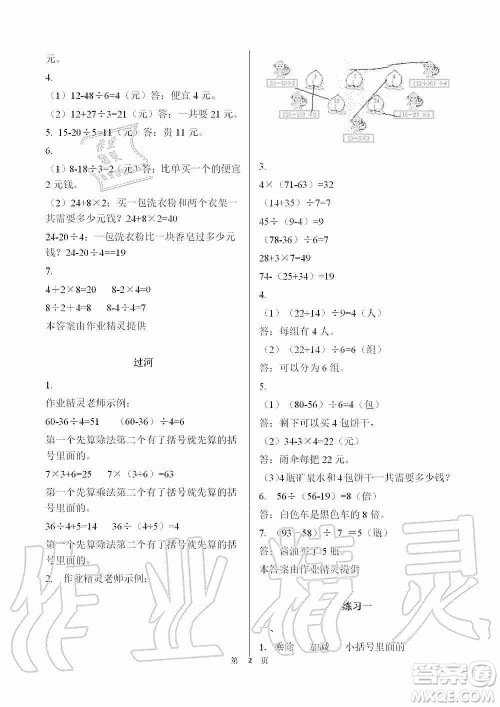 元。
4.
（1）12-48÷6=4（元）答：便宜 4 元。
（2）12+27÷3=21（元）答：一共要 21 元。
5. 15-20÷5=11（元）答：贵 11 元。
6.
（1）8-18÷3=2（元）答：比单买一个的便
宜 2 元钱。
（2）24+8×2=40（元）一包洗衣粉和两个衣架一
共需要多少元钱？24+8×2=40
24-20÷4=一包洗衣粉比一块香皂过多少元
钱？24-20÷4==19
7.
4+2×8=20 8-2×4=0
8÷2+4=8 8-2+4=0
本答案由作业精灵提供
过河
1.
作业精灵老师示例：
60-36÷4=51 （60-36）÷4=6
第一个先算除法第二个有了括号就先算的括
号里面的。
7×3+6=27 7×（3+6）=63
第一个先算乘法第二个有了括号就先算的括
号里面的。
36÷4+5=14 36÷（4+5）=4
第一个先算除法第二个有了括号就先算的括
号里面的。
2. 作业精灵老师示例：
3.
4×（71-63）=32
（14+35）÷7=7
45÷（3×3）=5
（78-36）÷6=7
28+3×7=49
74-（25+34）=15
4.
（1）（22+14）÷9=4（人）
答：每组有 4 人。
（2）（22+14）÷6=6（组）
答：可以分为 6 组。
5.
（1）（80-56）÷6=4（包）
答：剩下可以买 4 包饼干。
（2）34-3×4=22（元）
答：雨伞每把 22 元。
（3）4瓶矿泉水和4包饼干一共需要多少钱？
6. 56÷（56-19）=8（倍）
答：白色车是黑色车的 8 倍。
7.（93－58）÷ 7 ＝5（瓶）
答：酱油弄了 5 瓶。
本答案由作业精灵提供
练习一
、
1. 乘除 加减 小括号里面的
第 2 页
作业精灵